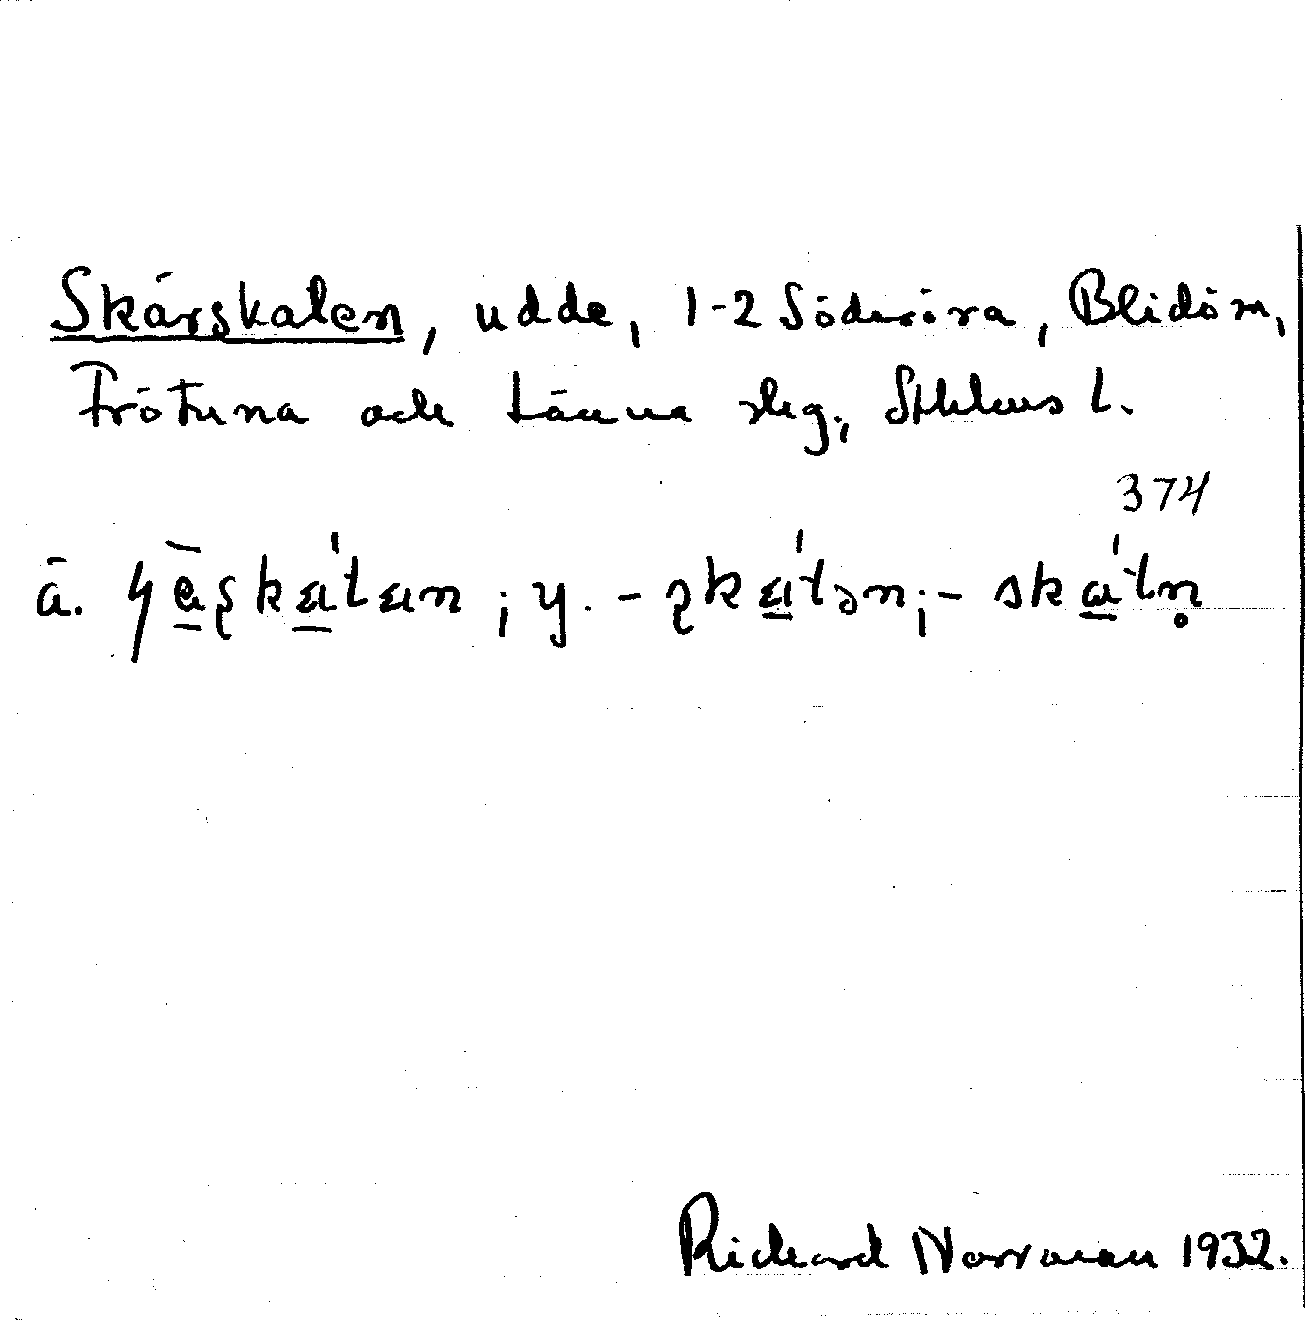 Skärskaten, udde, 1-2 Söderöra, Blidö sn,
Frötuna och Länna skg., Sthlms l.
374
ä. ɧä̠ʂka̠'tan ; y. - ʂka̠'tən ; - ska̠'tn̥
Richard Norrman 1932.